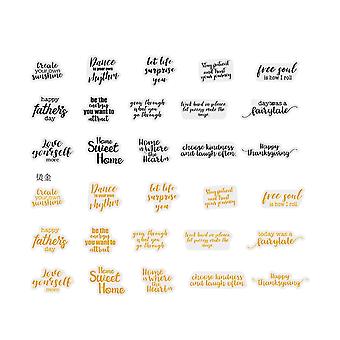 create
your own
sunshine
Dance
to your own
rhythm
let life
surprise
you
Stay patient
and trust
your journey
free soul
is how I roll
happy
father's
day
be the
energy
you want to
attract
grow through
what you
go through
work hard in silence
let success make
the noise
today was a
fairytale
Love
yourself
more
Home
Sweet
Home
Home
is where
the
Heart is
choose kindness
and laugh often
Happy
thanksgiving
烫金
create
your own
sunshine
Dance
to your own
rhythm
let life
surprise
you
Stay patient
and trust
your journey
free soul
is how I roll
happy
father's
day
be the
energy
you want to
attract
grow through
what you
go through
work hard in silence
let success make
the noise
today was a
fairytale
Love
yourself
more
Home
Sweet
Home
Home
is where
the
Heart is
choose kindness
and laugh often
Happy
thanksgiving